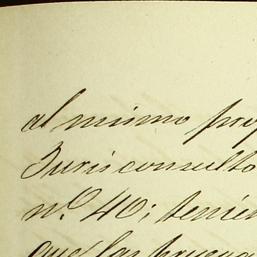 al mismo prop
Jurisconsulto
nº 40; tenien
que las prueba